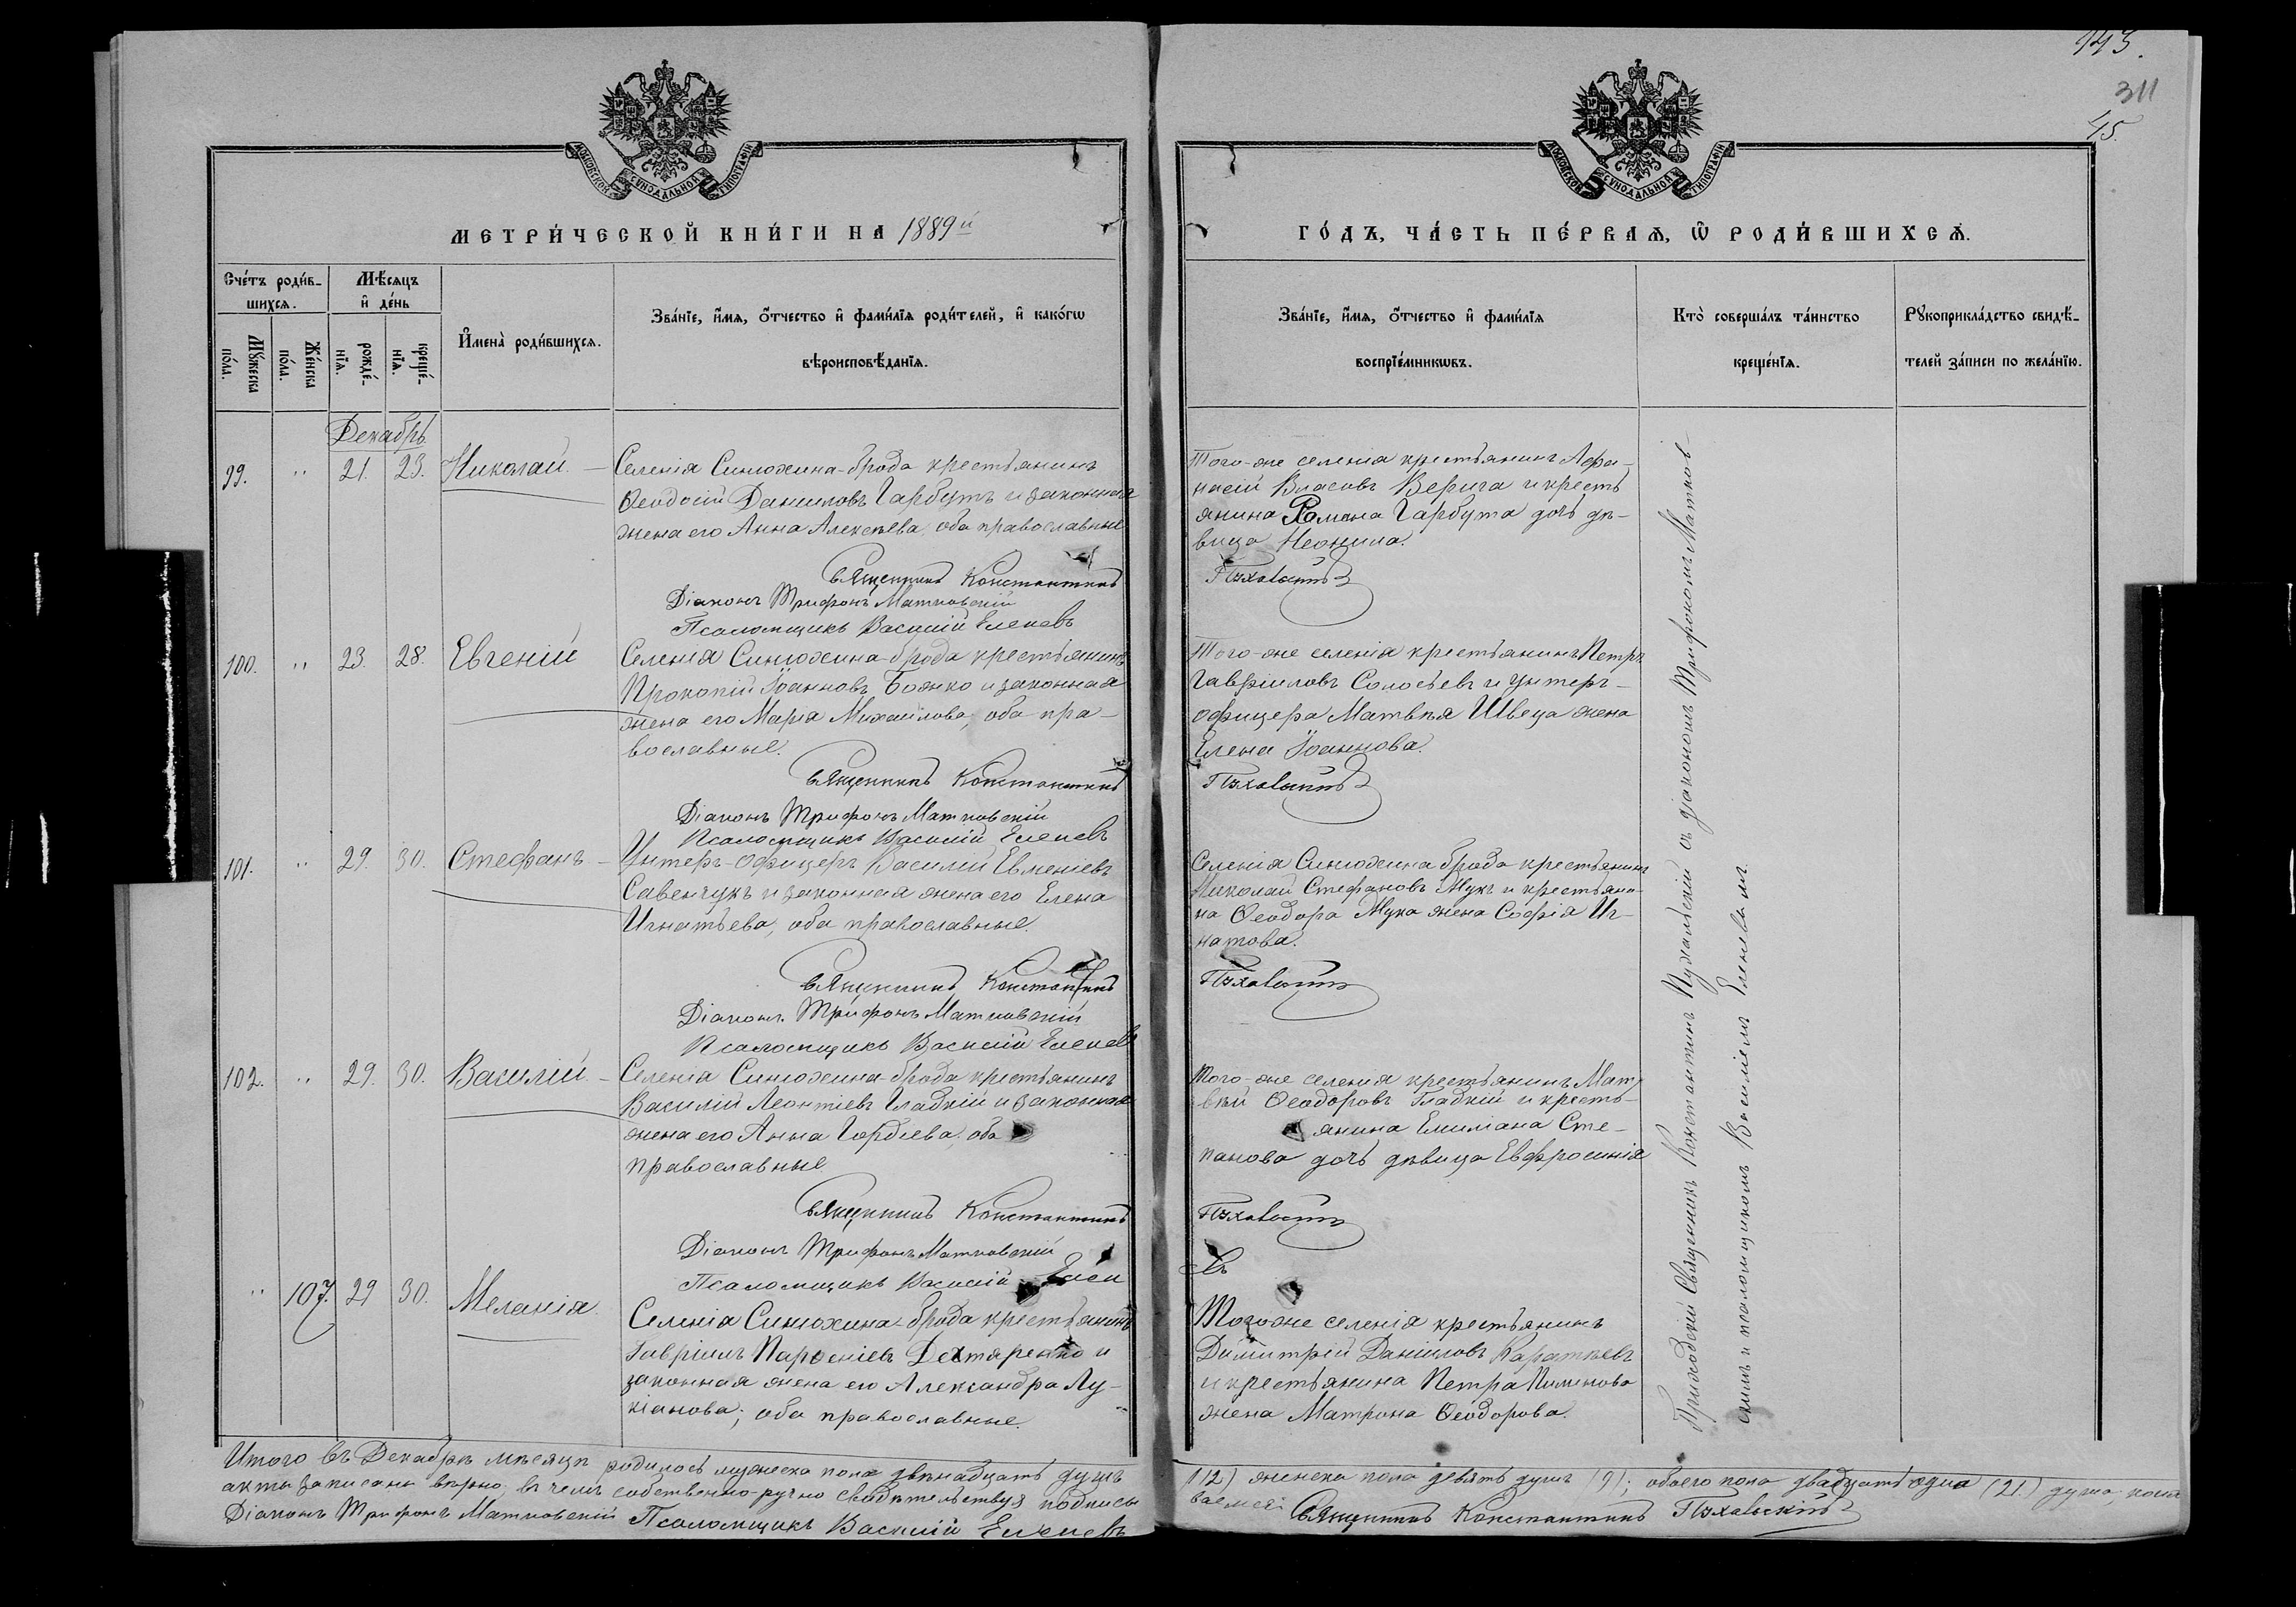 143.
311
45.
МОСКОВСКОЙ СУНОДАЛЬНОЙ ТИПОГРАФІИ
МОСКОВСКОЙ СУНОДАЛЬНОЙ ТИПОГРАФІИ
МЕТРИ́ЧЕСКОЙ КНИ́ГИ НА 1889й
ГО́ДЪ, ЧА́СТЬ ПЕ́РВАѦ, Ѿ РОДИ́ВШИХСѦ.
Сче́тъ роди́в-
шихсѧ.
Мꙋ́жеска по́ла.
Же́нска по́ла.
Мѣ́сѧцъ
и҆ де́нь
рожде́-
нїѧ.
креще́-
нїѧ.
И҆мена̀ роди́вшихсѧ.
Зва́нїе, и҆́мѧ, ѻ҆́тчество и҆ фами́лїѧ роди́телей, и҆ како́гѡ
вѣроисповѣ́данїѧ.
Зва́нїе, и҆́мѧ, ѻ҆́тчество и҆ фами́лїѧ
воспрїе́мникѡвъ.
Кто̀ соверша́лъ та́инство
креще́нїѧ.
Рꙋкоприкла́дство свидѣ́-
телей за́писи по жела́нїю.
Декабрь
99. " 21. 23. Николай.
Селенія Синюхина-брода крестьянинъ
Ѳеодосій Даниловъ Гарбутъ и законная
жена его Анна Алексѣева, оба православные
Священникъ Константинъ
Діаконъ Трифонъ Матковскій
Псаломщикъ Василій Еленевъ
Того-же селенія крестьянинъ Афа-
насій Власовъ Верига и кресть
янина Романа Гарбута дочь дѣ-
вица Неонила.
Пухальскій
100. " 23. 28. Евгеній
Селенія Синюхина-брода крестьянинъ
Прокопій Іоанновъ Боянко и законная
жена его Марія Михаилова, оба пра-
вославные.
Священникъ Константинъ
Діаконъ Трифонъ Матковскій
Псаломщикъ Василій Еленевъ
Того-же селенія крестьянинъ Петръ
Гавріиловъ Соловьевъ и унтеръ-
офицера Матвѣя Швеца жена
Елена Іоаннова.
Пухальскій
101. " 29. 30. Стефанъ
Унтеръ-офицеръ Василій Евменіевъ
Савенчукъ и законная жена его Елена
Игнатьева, оба православные.
Священникъ Константинъ
Діаконъ Трифонъ Матковскій
Псаломщикъ Василій Еленевъ
Селенія Синюхина брода крестьянинъ
Николай Стефановъ Мукъ и крестьяни-
на Ѳеодора Мука жена Софія Иг-
натова.
Пухальскій
102. " 29. 30. Василій
Селенія Синюхина-брода крестьянинъ
Василій Леонтіевъ Гладкій и законная
жена его Анна Гордіева, оба
православные
Священникъ Константинъ
Діаконъ Трифонъ Матковскій
Псаломщикъ Василій Елен
Того-же селенія крестьянинъ Мат-
вѣй Ѳеодоровъ Гладкій и кресть-
янина Емиліана Сте-
панова дочь дѣвица Евфросинія
Пухальскій
евъ
" 107. 29 30. Меланія.
Селенія Синюхина-брода крестьянинъ
Гавріилъ Парѳеніевъ Дехтяренко и
законная жена его Александра Лу-
кіанова; оба православные.
Того же селенія крестьянинъ
Димитрій Даніиловъ Каратѣевъ
и крестьянина Петра Пименова
жена Матрона Ѳеодорова.
Приходскій Священникъ Константинъ Пухальскій съ діакономъ Трифономъ Матков-
скимъ и псаломщикомъ Василіемъ Еленевымъ.
Итого въ Декабрѣ мѣсяцѣ родилось мужеска пола двѣнадцать душъ (12) женска пола девять душъ (9); обоего пола двадцать одна (21) душа, кои
акты записаны вѣрно, въ чемъ собственно-ручно свидѣтельствуя подписы
ваемся:
Священникъ Константинъ Пухальскій
Діаконъ Трифонъ Матковскій Псаломщикъ Василій Еленевъ